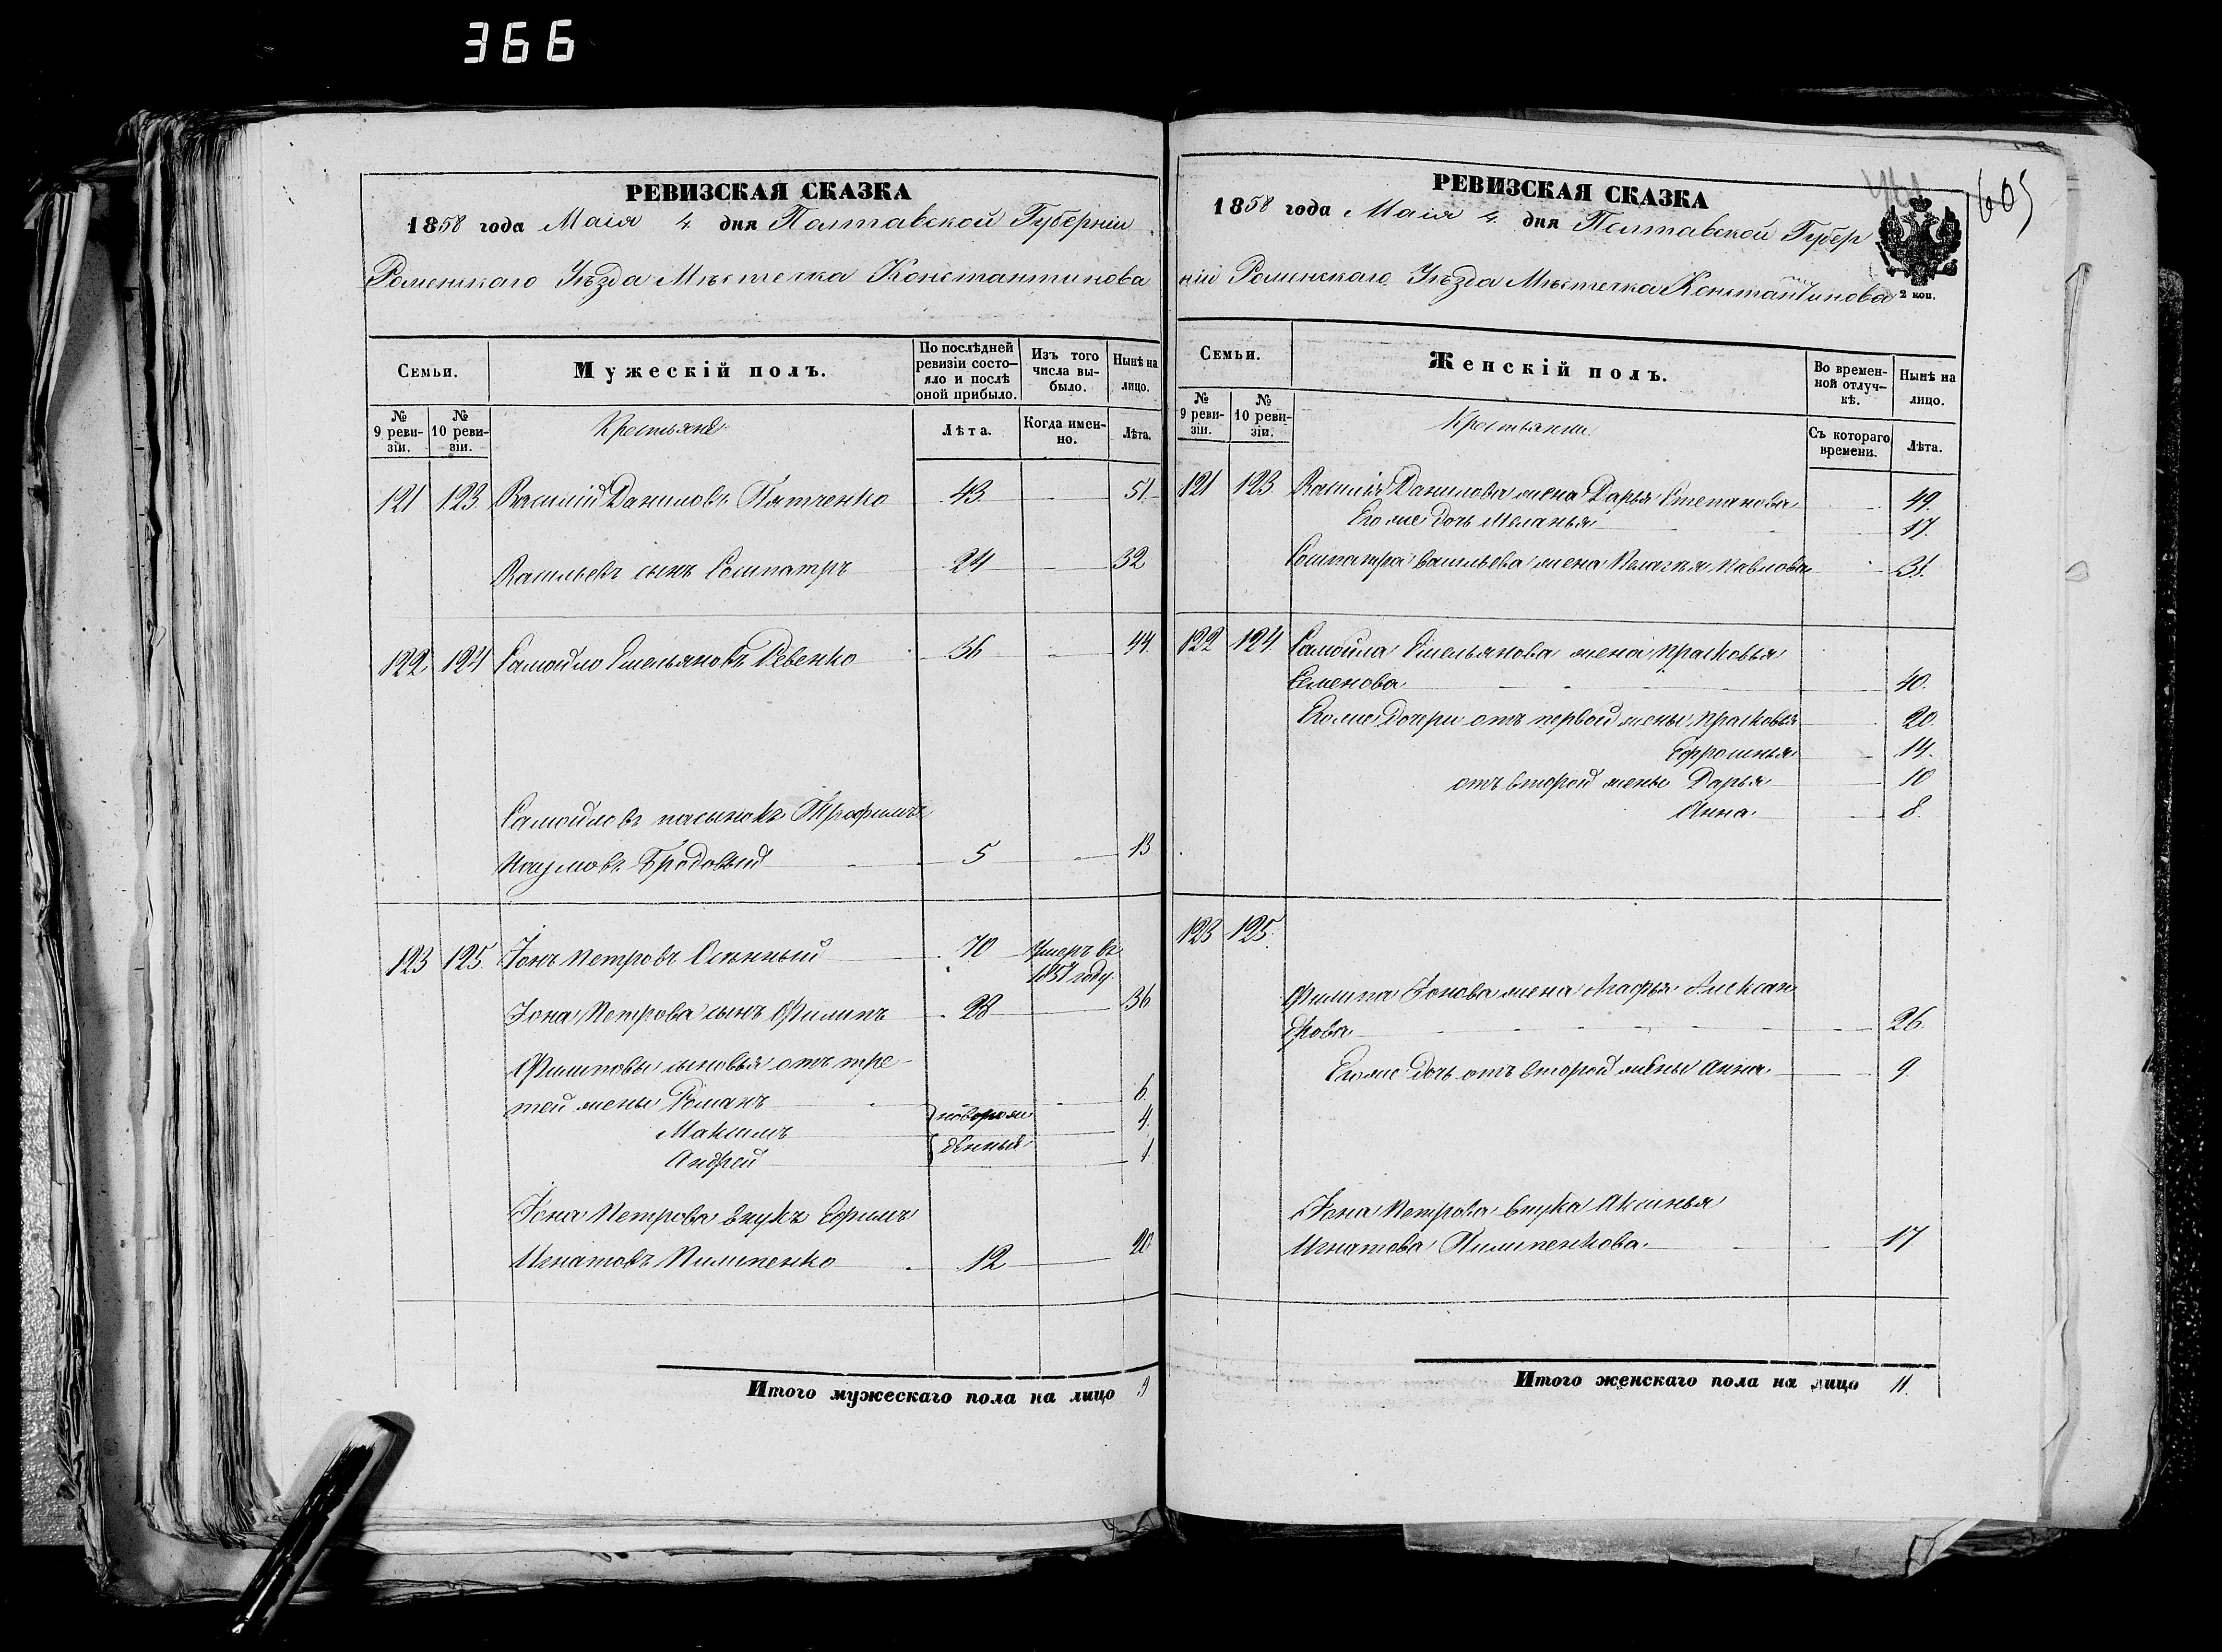 366
РЕВИЗСКАЯ СКАЗКА
1858 года Маія 4. дня Полтавской Губерніи
Роменскаго Уѣзда Мѣстечка Константинова
Семьи.
Мужескій полъ.
По послѣдней ревизіи состояло и послѣ оной прибыло.
Изъ того числа выбыло.
Нынѣ на лицо.
№ 9 ревизіи.
№ 10 ревизіи.
Крестьяне
Лѣта.
Когда именно.
Лѣта.
121 123. Василій Даниловъ Пятченко 43 51.
Васильевъ сынъ Сосипатръ 24 32
122. 124 Самойло Емельяновъ Ревенко 36 44.
Самойловъ пасынокъ Трофимъ
Наумовъ Бродовый 5 13
123 125. Іонъ Петровъ Осѣнный 70 Умеръ въ
1857 году.
Іона Петрова сынъ Филипъ 28 36
Филиповы сыновья отъ тре-
тей жены Романъ 6.
Максимъ новорож 4.
Андрей денные 1.
Іона Петрова внукъ Ефимъ
Игнатовъ Пилипенко 12 20
Итого мужескаго пола на лицо 9
РЕВИЗСКАЯ СКАЗКА
605
1858 года Маія 4. дня Полтавской Губер
ніи Роменскаго Уѣзда Мѣстечка Константинова
2 коп.
Семьи.
Женскій полъ.
Во временной отлучкѣ.
Нынѣ на лицо.
№ 9 ревизіи.
№ 10 ревизіи.
Крестьянки.
Съ котораго времени.
Лѣта.
121 123. Василія Данилова жена Дарья Степанова 49.
Его же дочь Меланья 17.
Сосипатра Васильева жена Пелагѣя Павлова 31.
122 124. Самойла Емельянова жена Прасковья
Семенова 40.
Его же дочери отъ первой жены Прасковья 20.
Ефросинья 14.
отъ второй жены Дарья 10
Анна. 8.
123 125.
Филипа Іонова жена Агафья Алексан
дрова 26.
Его же дочь отъ второй жены Анна. 9
Іона Петрова внука Аксинья
Игнатова Пилипенкова. 17
Итого женскаго пола на лицо 11.